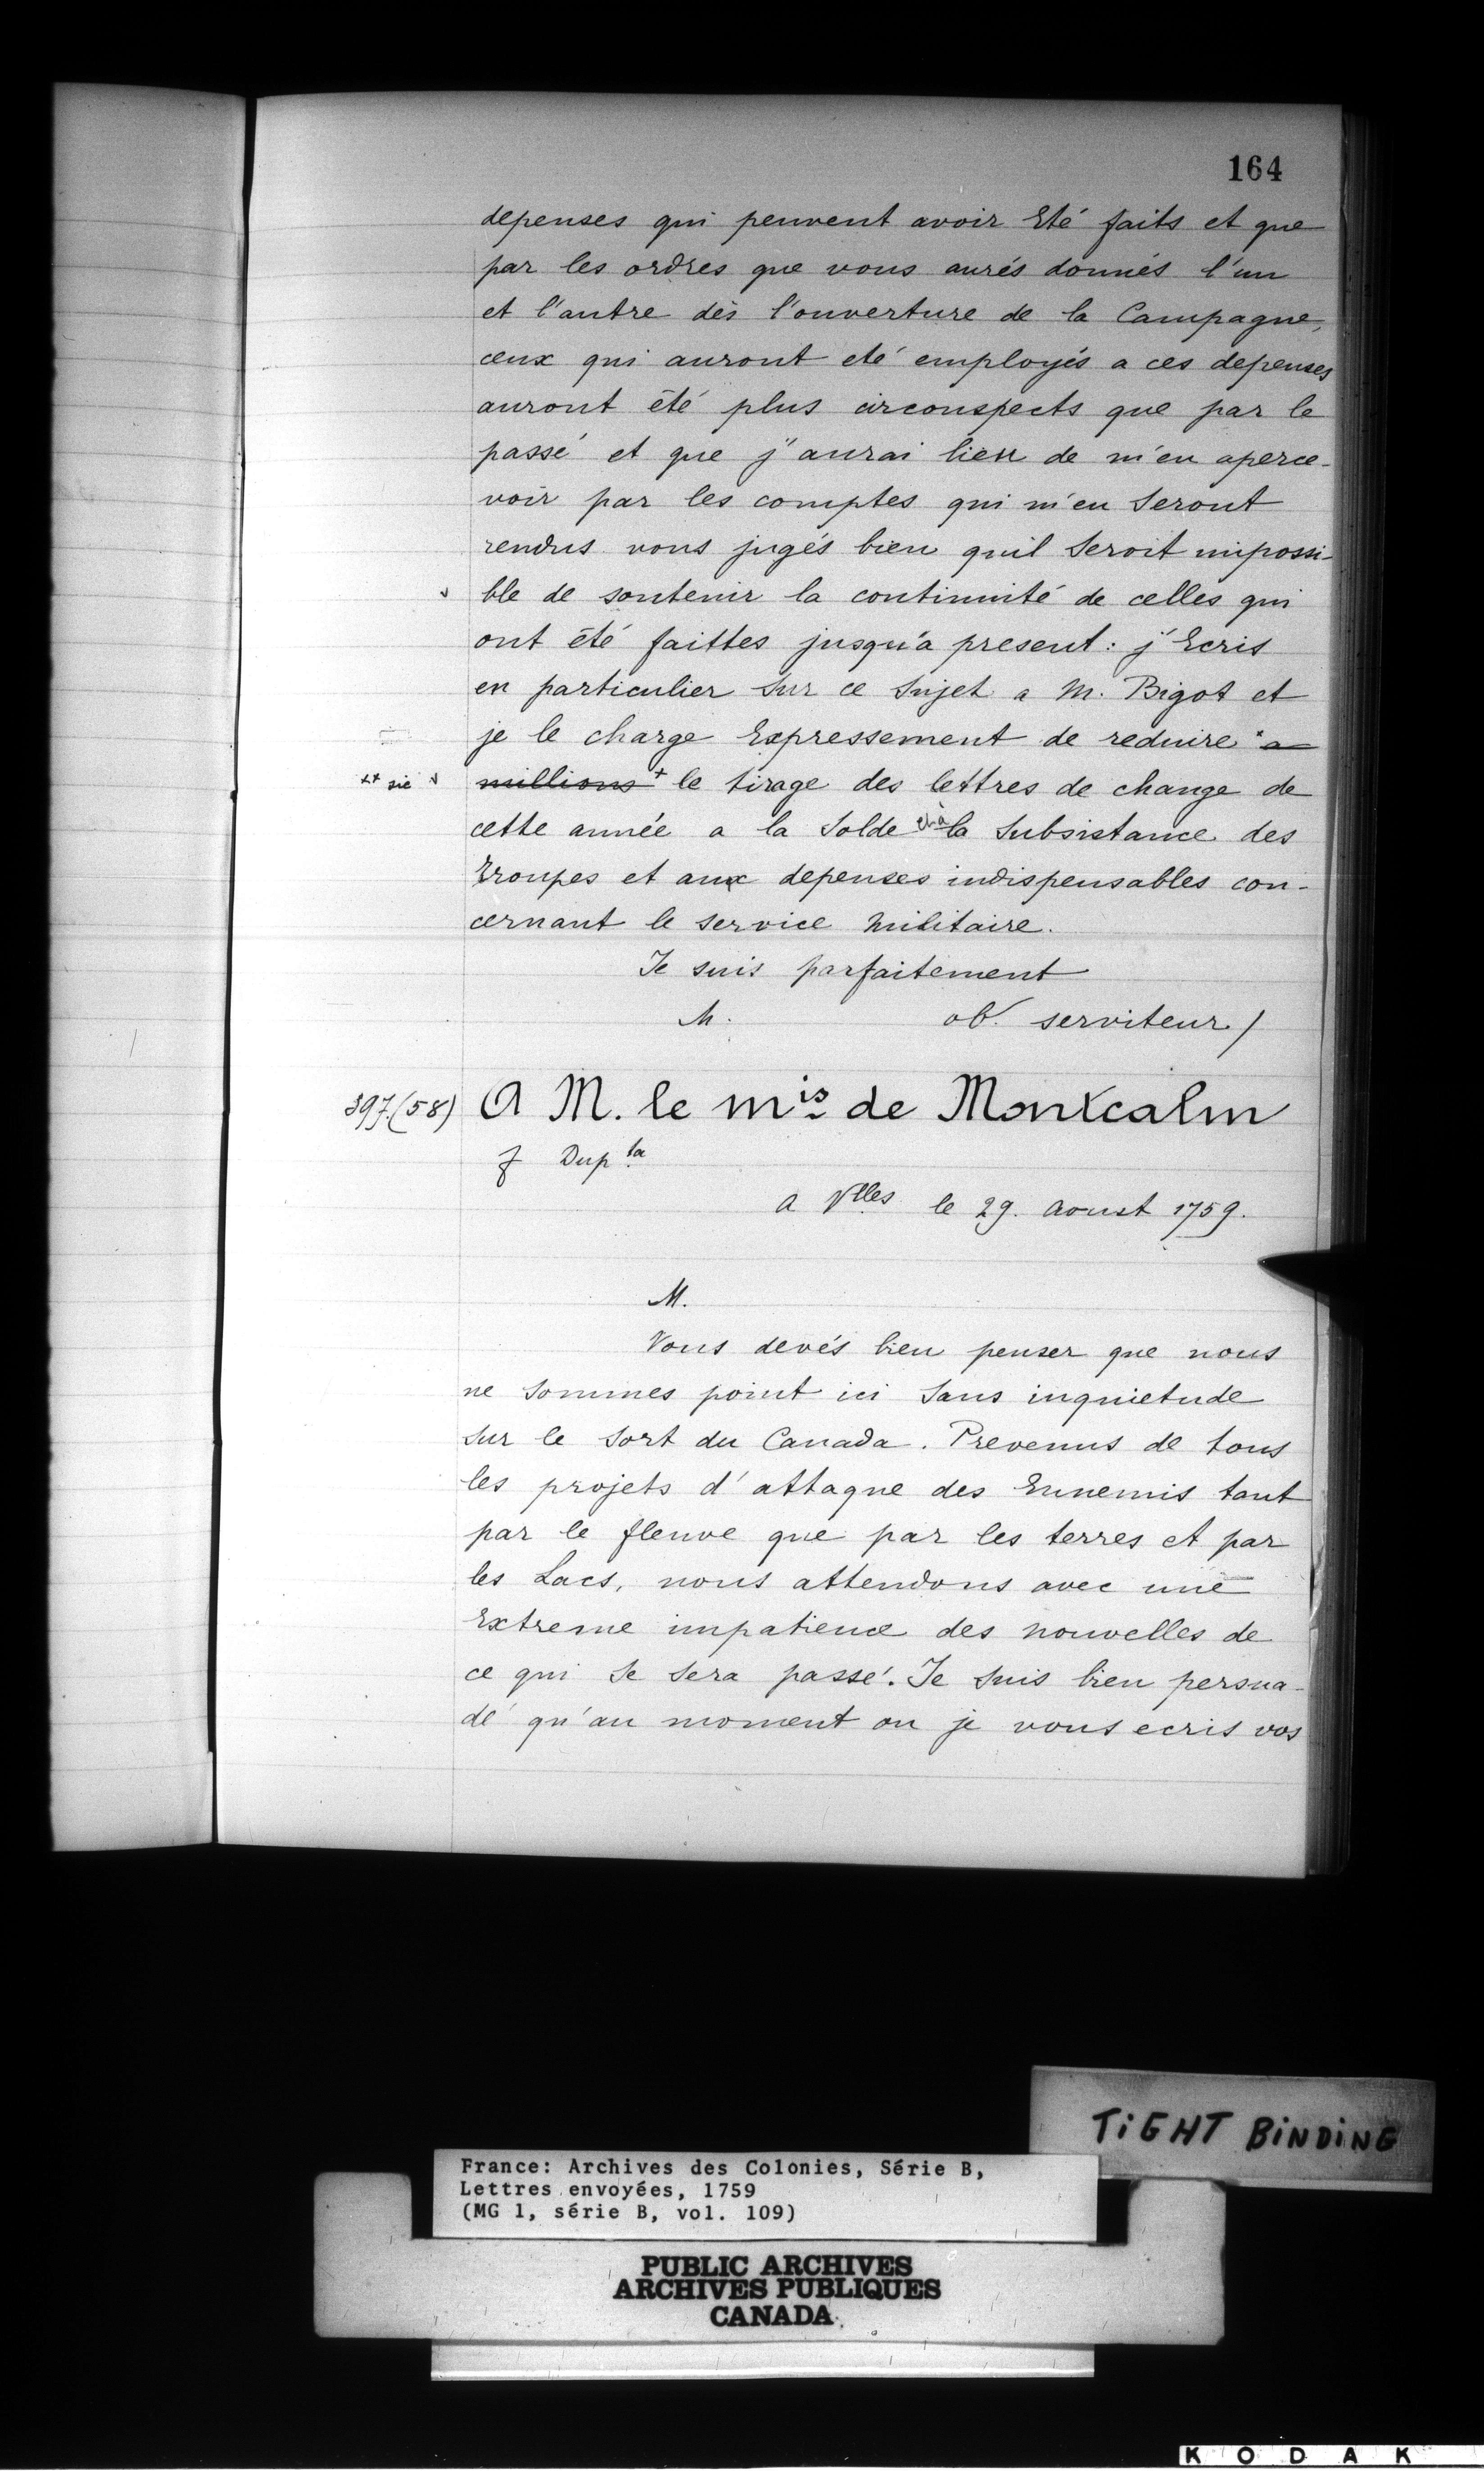 164
depenses qui peuvent avoir Eté faits et que
par les ordres que vous aurés donnés l'un
et l'autre dès l'ouverture de la Campagne,
ceux qui auront eté employés a ces depenses
auront été plus circonspects que par le
passé et que j'aurai lieu de m'en aperce-
voir par les comptes qui m'en seront
rendus vous jugés bien qu'il seroit impossi-
ble de soutenir la continuité de celles qui
ont été faittes jusqu'a present: j'Ecris
en particulier sur ce sujet a M. Bigot et
je le charge Expressement de reduire a
++ sic millions + le tirage des lettres de change de
cette année a la solde et à la subsistance des
Troupes et aux depenses indispensables con-
cernant le service militaire.
Je suis parfaitement
M. ob. serviteur /
397.(58) A M. le mis de Montcalm
Dup ta
a Vlles le 29. aoust 1759.
M.
Vous devés bien penser que nous
ne sommes point ici sans inquietude
sur le sort du Canada. Prevenus de tous
les projets d'attaque des Ennemis tant
par le fleuve que par les terres et par
les Lacs, nous attendons avec une
Extreme impatience des nouvelles de
ce qui se sera passé. Je suis bien persua-
dé qu'au moment ou je vous ecris vos
TIGHT BINDING
France: Archives des Colonies, Série B,
Lettres envoyées, 1759
(MG 1, série B, vol. 109)
PUBLIC ARCHIVES
ARCHIVES PUBLIQUES
CANADA
KODAK